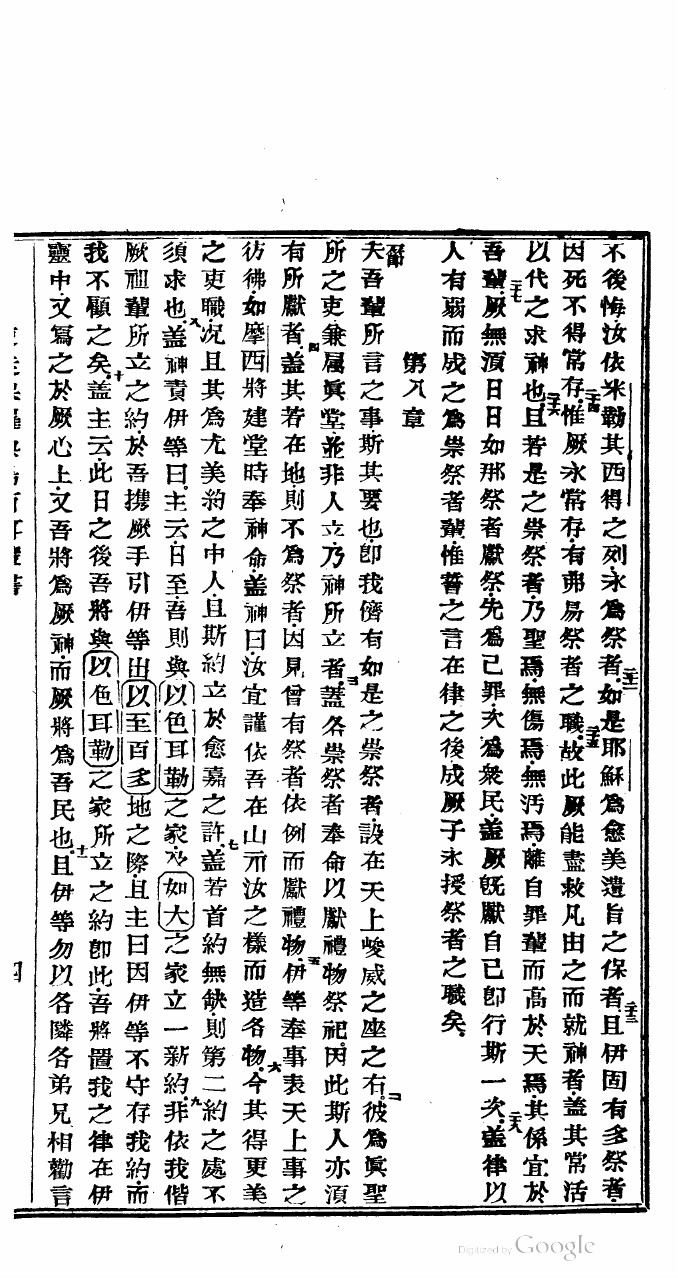 不後悔汝依米勒其西得之列永爲祭者如是耶穌爲愈美遺旨之保者且伊固有多祭者
二十二 二十三
因死不得常存惟厥永常存有弗易祭者之職故此厥能盡救凡由之而就神者蓋其常活
二十四 二十五
以代之求神也且若是之崇祭者乃聖焉無傷焉無污焉離自罪輩而高於天焉其係宜於
二十六
吾輩厥無湏日日如那祭者獻祭先爲己罪次爲衆民蓋厥旣獻自己卽行斯一次蓋律以
二十七 二十八
人有弱而成之爲崇祭者輩惟誓之言在律之後成厥子永授祭者之職矣
第八章
夫吾輩所言之事斯其要也卽我儕有如是之崇祭者設在天上峻威之座之右彼爲眞聖
二
所之吏兼屬眞堂並非人立乃神所立者蓋各崇祭者奉命以獻禮物祭祀因此斯人亦湏
三
有所獻者蓋其若在地則不爲祭者因見曾有祭者依例而獻禮物伊等奉事表天上事之
四 五
彷彿如摩西將建堂時奉神命蓋神曰汝宜謹依吾在山示汝之樣而造各物今其得更美
六
之吏職况且其爲尤美約之中人且斯約立於愈嘉之許蓋若首約無缺則第二約之處不
七
須求也蓋神責伊等曰主云日至吾則與以色耳勒之家及如大之家立一新約非依我偕
八 九
厥祖輩所立之約於吾携厥手引伊等出以至百多地之際且主曰因伊等不守存我約而
我不顧之矣蓋主云此日之後吾將與以色耳勒之家所立之約卽此吾將置我之律在伊
十
靈中又寫之於厥心上又吾將爲厥神而厥將爲吾民也且伊等勿以各隣各弟兄相勸言
十一
四
Digitized by Google